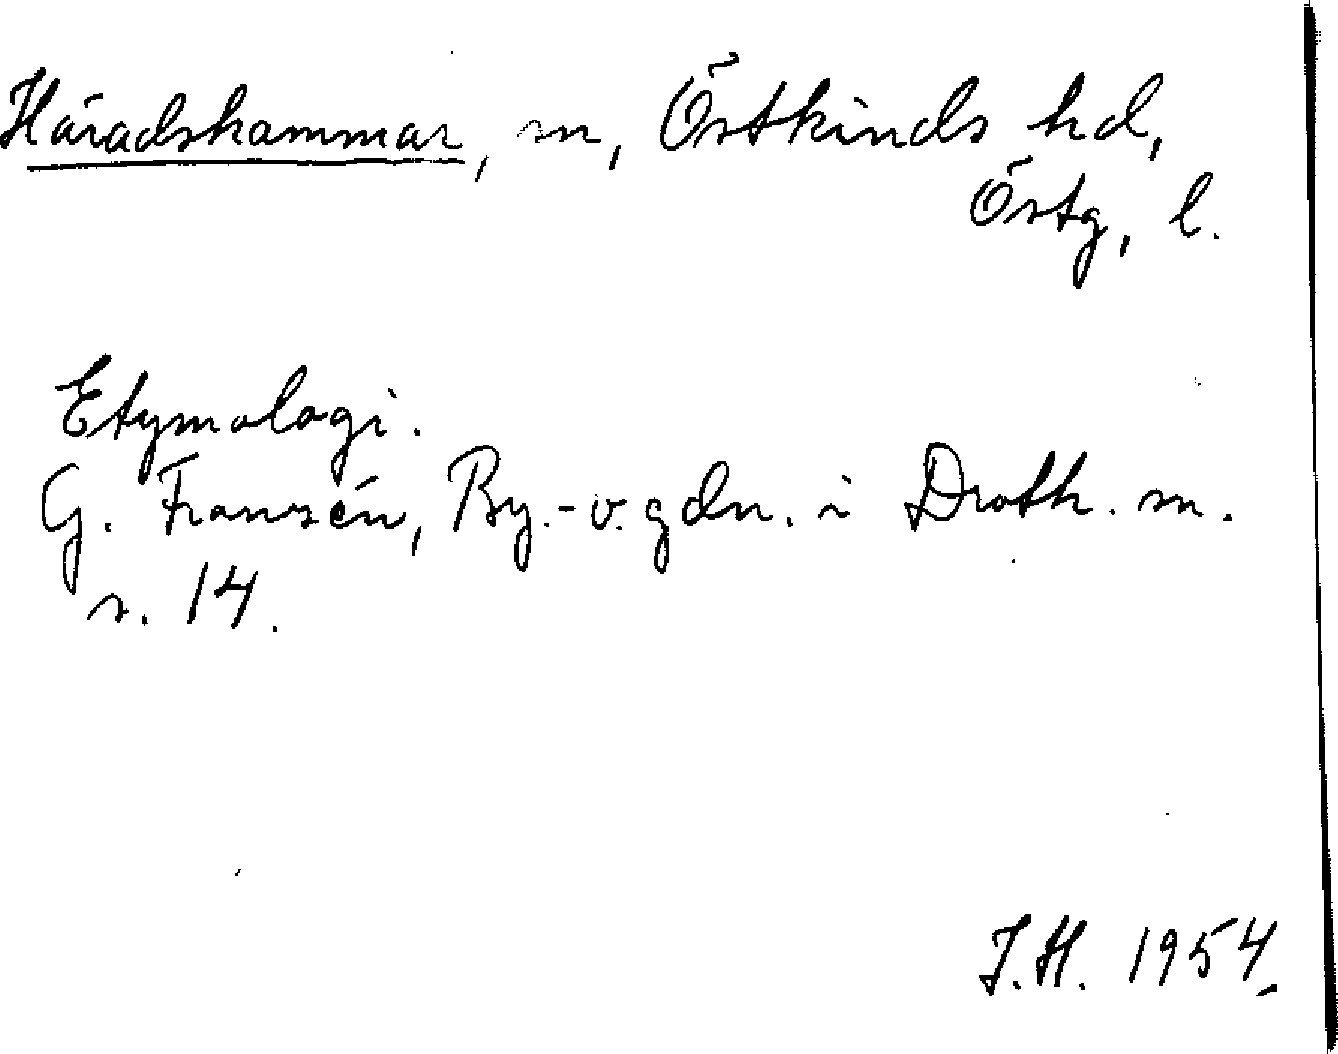 Häradshammar, sn, Östkinds hd,
Östg. l.
Etymologi.
G. Franzén, By.-o.gdn. i Droth. sn.
s. 14.
J.H. 1954.